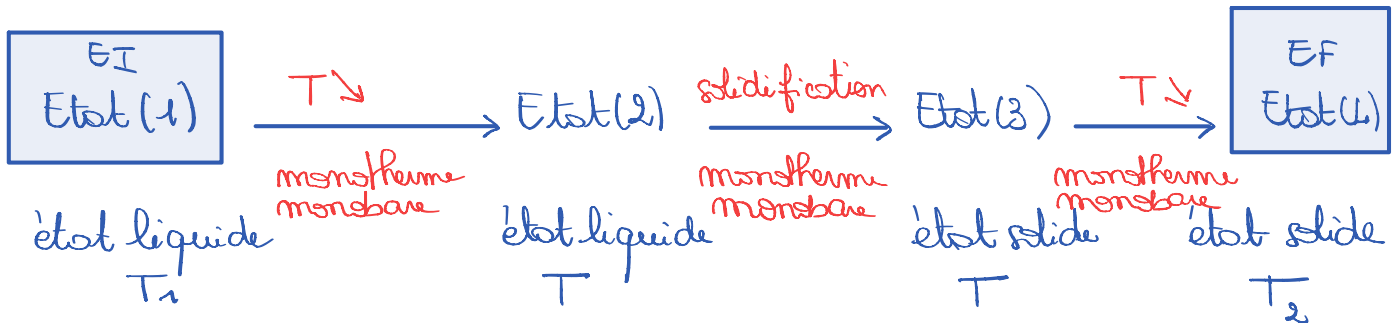 EI
Etat (1)
T ↘
monotherme
monobare
Etat (2)
solidification
monotherme
monobare
Etat (3)
T ↘
monotherme
monobare
EF
Etat (4)
état liquide
T1
état liquide
T
état solide
T
état solide
T2